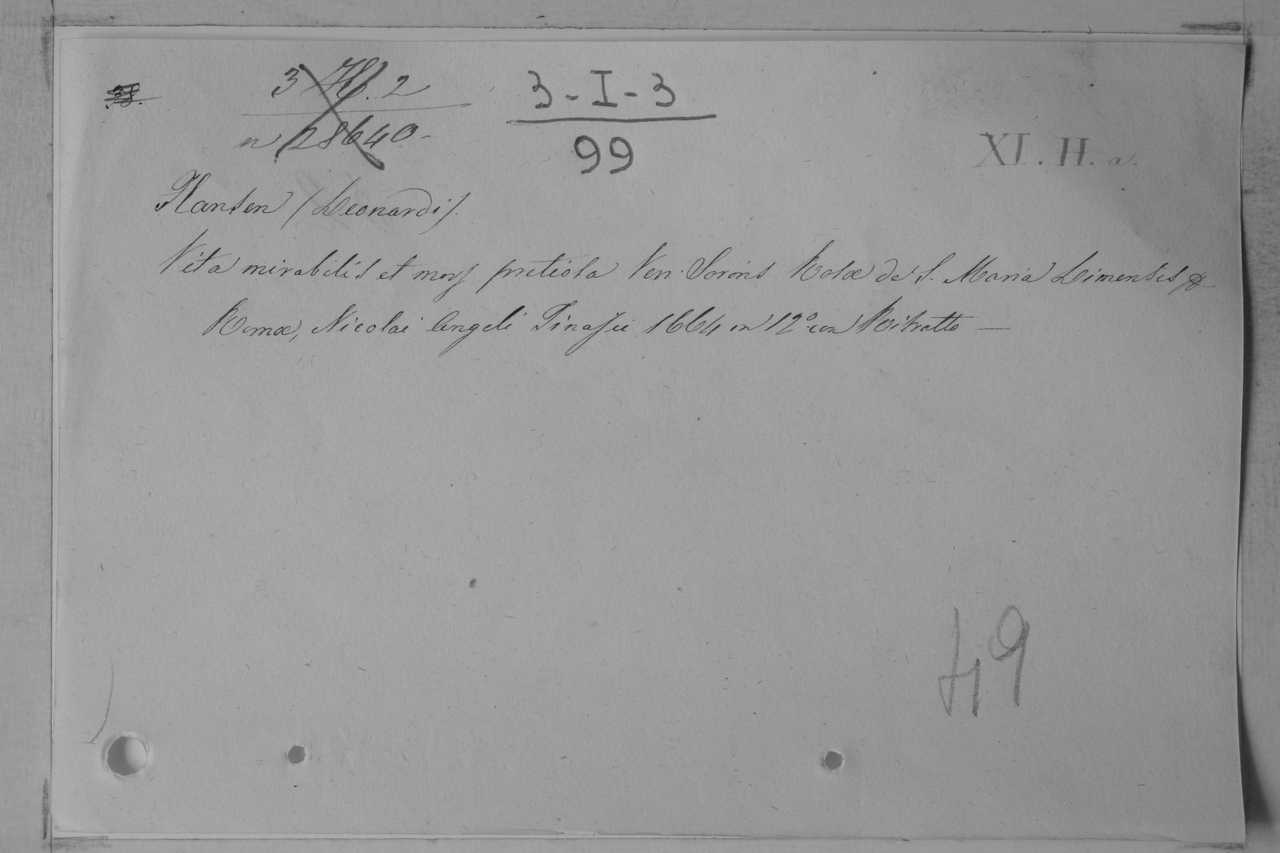 3 H. 2
n 28640-
3-I-3
99
XI. H. a.
Hansen (Leonardi).
Vita mirabilis et mors pretiosa Ven. Sororis Rosæ de S. Maria Limensis &
Romæ, Nicolai Angeli Tinassii 1664 in 12º con Ritratto —
49